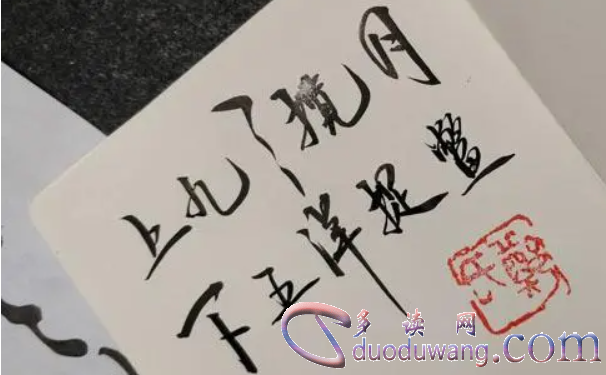 上九天揽月
下五洋捉鳖
多读网
duoduwang.com